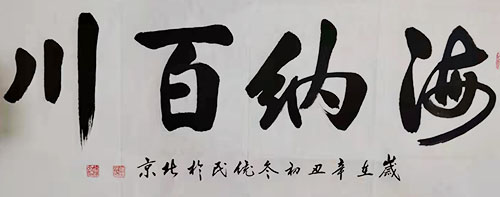 海纳百川
岁在辛丑初冬统民于北京